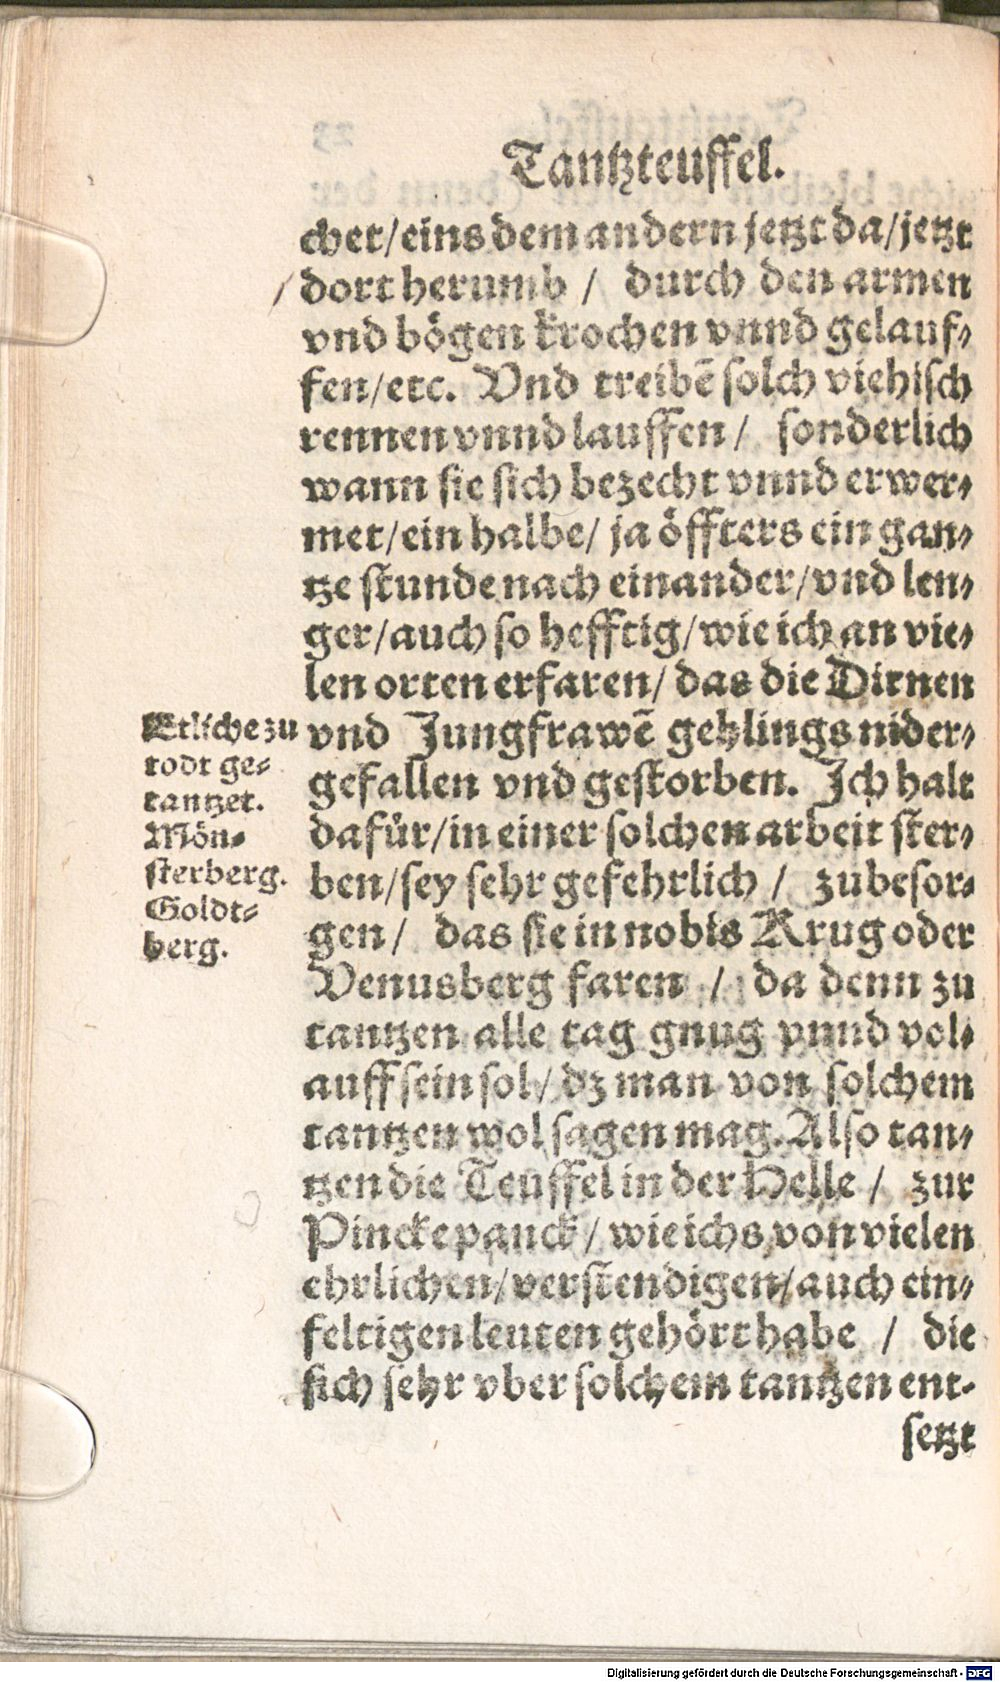 Tantzteuffel.
cher/eins dem andern jetzt da/jetzt
/dort herumb / durch den armen
vnd bögen krochen vnnd gelauf⸗
fen/etc. Vnd treibẽ solch viehisch
rennen vnnd lauffen / sonderlich
wann sie sich bezecht vnnd erwer⸗
met/ein halbe/ ja öffters ein gan⸗
tze stunde nach einander/vnd len⸗
ger/auch so hefftig/wie ich an vie⸗
len orten erfaren/ das die Dirnen
vnd Jungfrawẽ gehlings nider⸗
gefallen vnd gestorben. Ich halt
dafür/in einer solchen arbeit ster⸗
ben/sey sehr gefehrlich / zubesor⸗
gen / das sie in nobis Krug oder
Venusberg faren / da denn zu
tantzen alle tag gnug vnnd vol⸗
auff sein sol/ dz man von solchem
tantzen wol sagen mag. Also tan⸗
tzen die Teuffel in der Helle / zur
Pinckepauck/ wie ichs von vielen
ehrlichen/verstendigen/auch ein⸗
feltigen leuten gehört habe / die
sich sehr vber solchem tantzen ent⸗
setzt
Etliche zu
todt ge⸗
tantzet.
Mön⸗
sterberg.
Goldt⸗
berg.
Digitalisierung gefördert durch die Deutsche Forschungsgemeinschaft - DFG